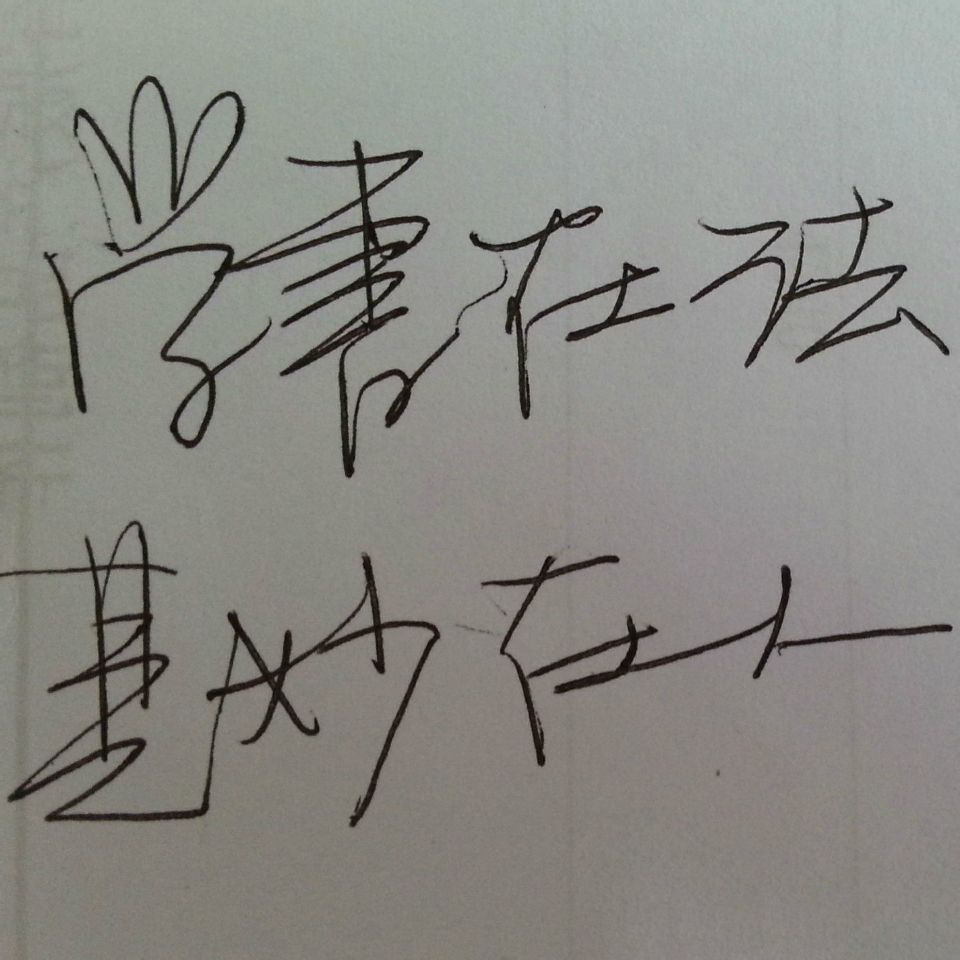 学書在法
其妙在人